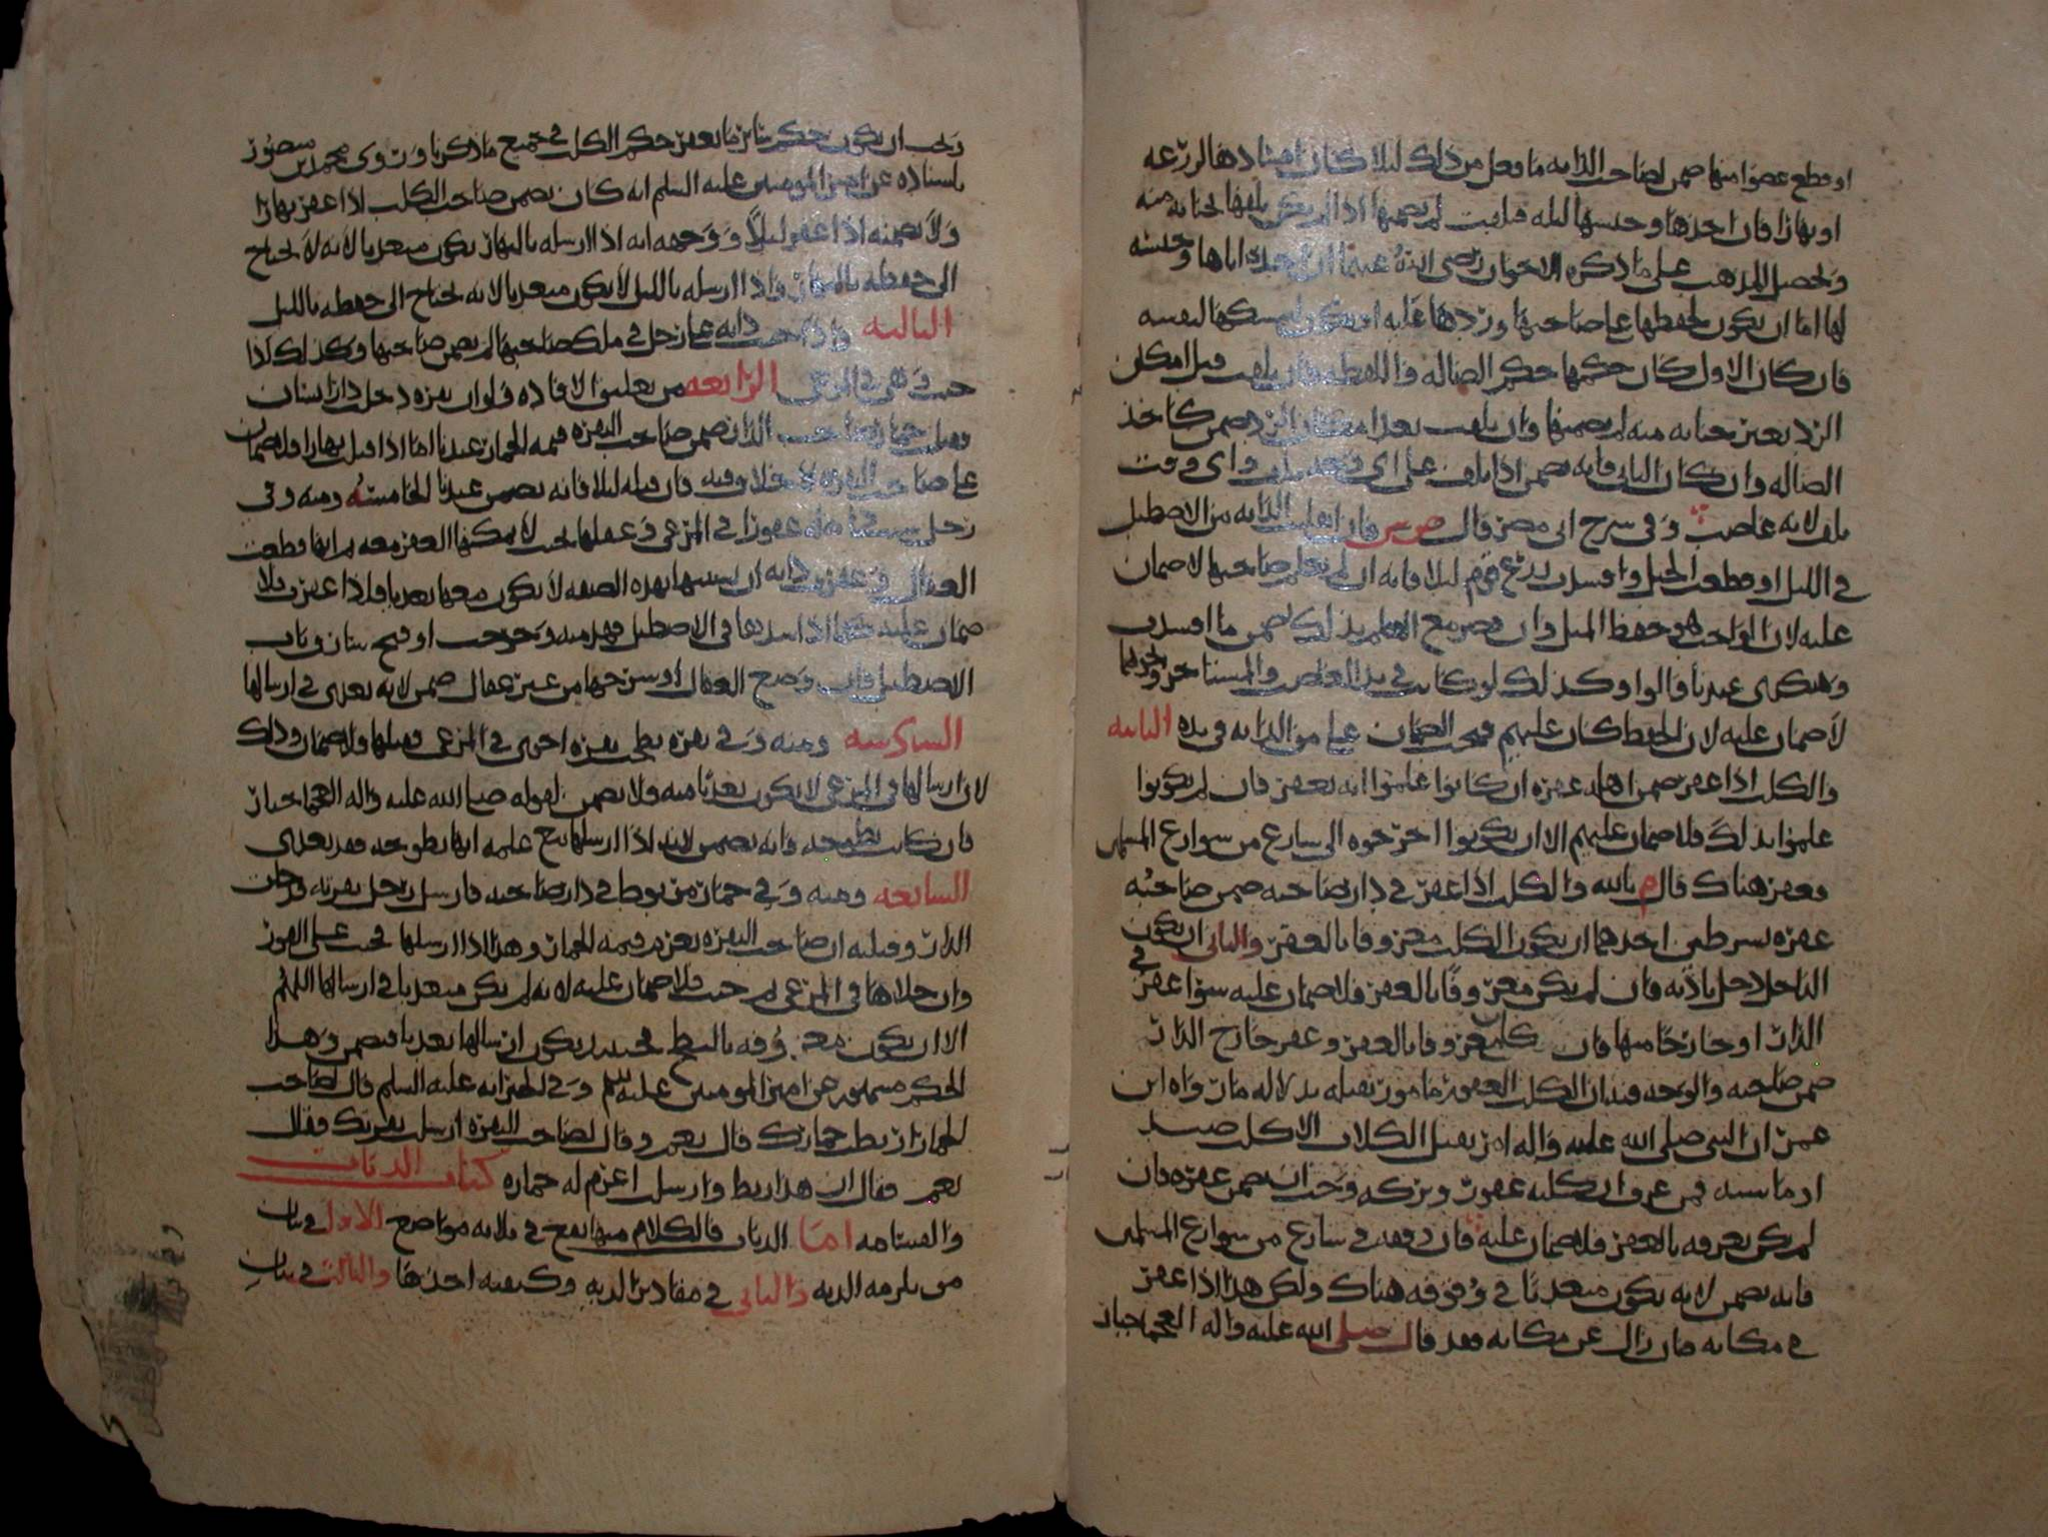 او قطع عضوا منها ضمن لصاحب الدابه ما فعل من ذلك ليلا كان افسادها لزرعه
او نهارا فان اخذها وحبسها ليله فتلفت لم يضمنها اذا لم يكن تلفها بجنايه منه
وتحصيل المذهب على ما ذكره الاخوان رضي الله عنهما ان اخذه اياها وحبسه
لها اما ان يكون لحفظها على صاحبها وردها عليه او يكون ليمسكها لنفسه
فان كان الاول كان حكمها حكم الضاله واللقطه فان تلفت قبل امكان
الرد بغير جنايه منه لم يضمنها وان تلفت بعد امكان الرد ضمن كاخذ
الضاله وان كان الثاني فانه يضمن اذا تلف على اي وجه تلف واي وقت
تلف لانه غاصب وفي شرح ابي مضر قال فان انفلتت الدابه من الاصطبل
في الليل او قطعت الحبل وافسدت زرع قوم ليلا فانه ان لم يعلم صاحبها لا ضمان
عليه لان الواجب هو حفظ المثل وان قصر مع العلم بذلك ضمن ما افسدت
وهكذى عندنا قالوا وكذلك لو كانت في يد الغاصب والمستاجر ونحوهما
لا ضمان عليه لان الحفظ كان عليهم فيجب الضمان على من الدابه في يده الثانيه
والكلب اذا عقر ضمن اهله عقره ان كانوا علموا انه يعقر فان لم يكونوا
علموا بذلك فلا ضمان عليهم الا ان يكونوا اخرجوه الى شارع من شوارع المسلمين
فعقر هناك قال م بالله والكلب اذا عقر في دار صاحبه ضمن صاحبه
عقره بشرطين احدهما ان يكون الكلب معروفا بالعقر والثاني ان يكون
الداخل دخل باذنه فان لم يكن معروفا بالعقر فلا ضمان عليه سوا عقر في
الدار او خارجا منها فان كان معروفا بالعقر وعقر خارج الدار
ضمن صاحبه والوجه فيه ان الكلب العقور مامور بقتله بدلاله ما رواه ابن
عمر ان النبي صلى الله عليه واله امر بقتل الكلاب الا كلب صيد
او ماشيه فمن عرف ان كلبه عقور وتركه وجب ان يضمن عقره فان
لم يكن يعرفه بالعقر فلا ضمان عليه فان وقفه في شارع من شوارع المسلمين
فانه يضمن لانه يكون متعديا في وقوفه هناك ولكن هذا اذا عقر
في مكانه فان زال عن مكانه فقد قال صلى الله عليه واله العجما جبار
ويجب ان يكون حكم سائر ما يعقر حكم الكلب في جميع ما ذكرنا وروى محمد بن منصور
باسناده عن امير المومنين عليه السلم انه كان يضمن صاحب الكلب اذا عقر نهارا
ولا يضمنه اذا عقر ليلا ووجهه انه اذا ارسله بالنهار يكون متعديا لانه لا يحتاج
الى حفظه بالنهار واذا ارسله بالليل لا يكون متعديا لانه يحتاج الى حفظه بالليل
الثالثه واذا جنت دابه على رجل في ملك صاحبها لم يضمن صاحبها وكذلك اذا
جنت وهي في المرعى الرابعه من تعليق الافاده فلو ان بقره دخل دار انسان
وقتل حمار صاحب الدار ضمن صاحب البقره قيمه الحمار عندنا اما اذا قتل نهارا فلا ضمان
على صاحب البقره لا خلاف فيه فان قتله ليلا فانه يضمن عندنا الخامسه ومنه وفي
رجل سيب دابه عقورا في المرعى وعقلها بحيث لا يمكنها العقر معه ثم انها قطعت
العقال وعقرت دابه ان تسييبها بهذه الصفه لا يكون معها تعديا فلذا عقرت فلا
ضمان عليه كما اذا شدها في الاصطبل فهدمته وخرجت او فتح سارق باب
الاصطبل فان وضع العقال او سرحها من غير عقال ضمن لانه تعدى في ارسالها
السادسه ومنه وفي بقره نطحت بقره اخرى في المرعى وقتلها فلا ضمان وذلك
لان ارسالها في المرعى لا يكون تعديا منه ولا يضمن لقوله صلى الله عليه واله العجما جبار
فان كانت نطوحه فانه يضمن لانه اذا ارسلها مع علمه انها نطوحه فقد تعدى
السابعه ومنه وفي حمار مربوط في دار صاحبه فارسل رجل بقرته وجات
الدار وقتلته ان صاحب البقره يغرم قيمه الحمار وهذا اذا ارسلها فجنت على الفور
وان خلاها في المرعى ثم جنت فلا ضمان عليه لانه لم يكن متعديا في ارسالها اللهم
الا ان يكون معروفه بالنطح فحينئذ يكون ارسالها تعديا فيضمن وهذا
الحكم مشهور عن امير المومنين عليه السلم وفي الخبر انه عليه السلم قال لصاحب
الحمار اربطت حمارك قال نعم وقال لصاحب البقره ارسلت بقرتك فقال
نعم فقال ان هذا ربط وارسلت اغرم له حماره كتاب الديات
والقسامه اما الديات فالكلام منها يقع في ثلاثه مواضع الاول في بيان
من يلزمه الديه والثاني في مقادير الديه وكيفيه اخذها والثالث في بيان